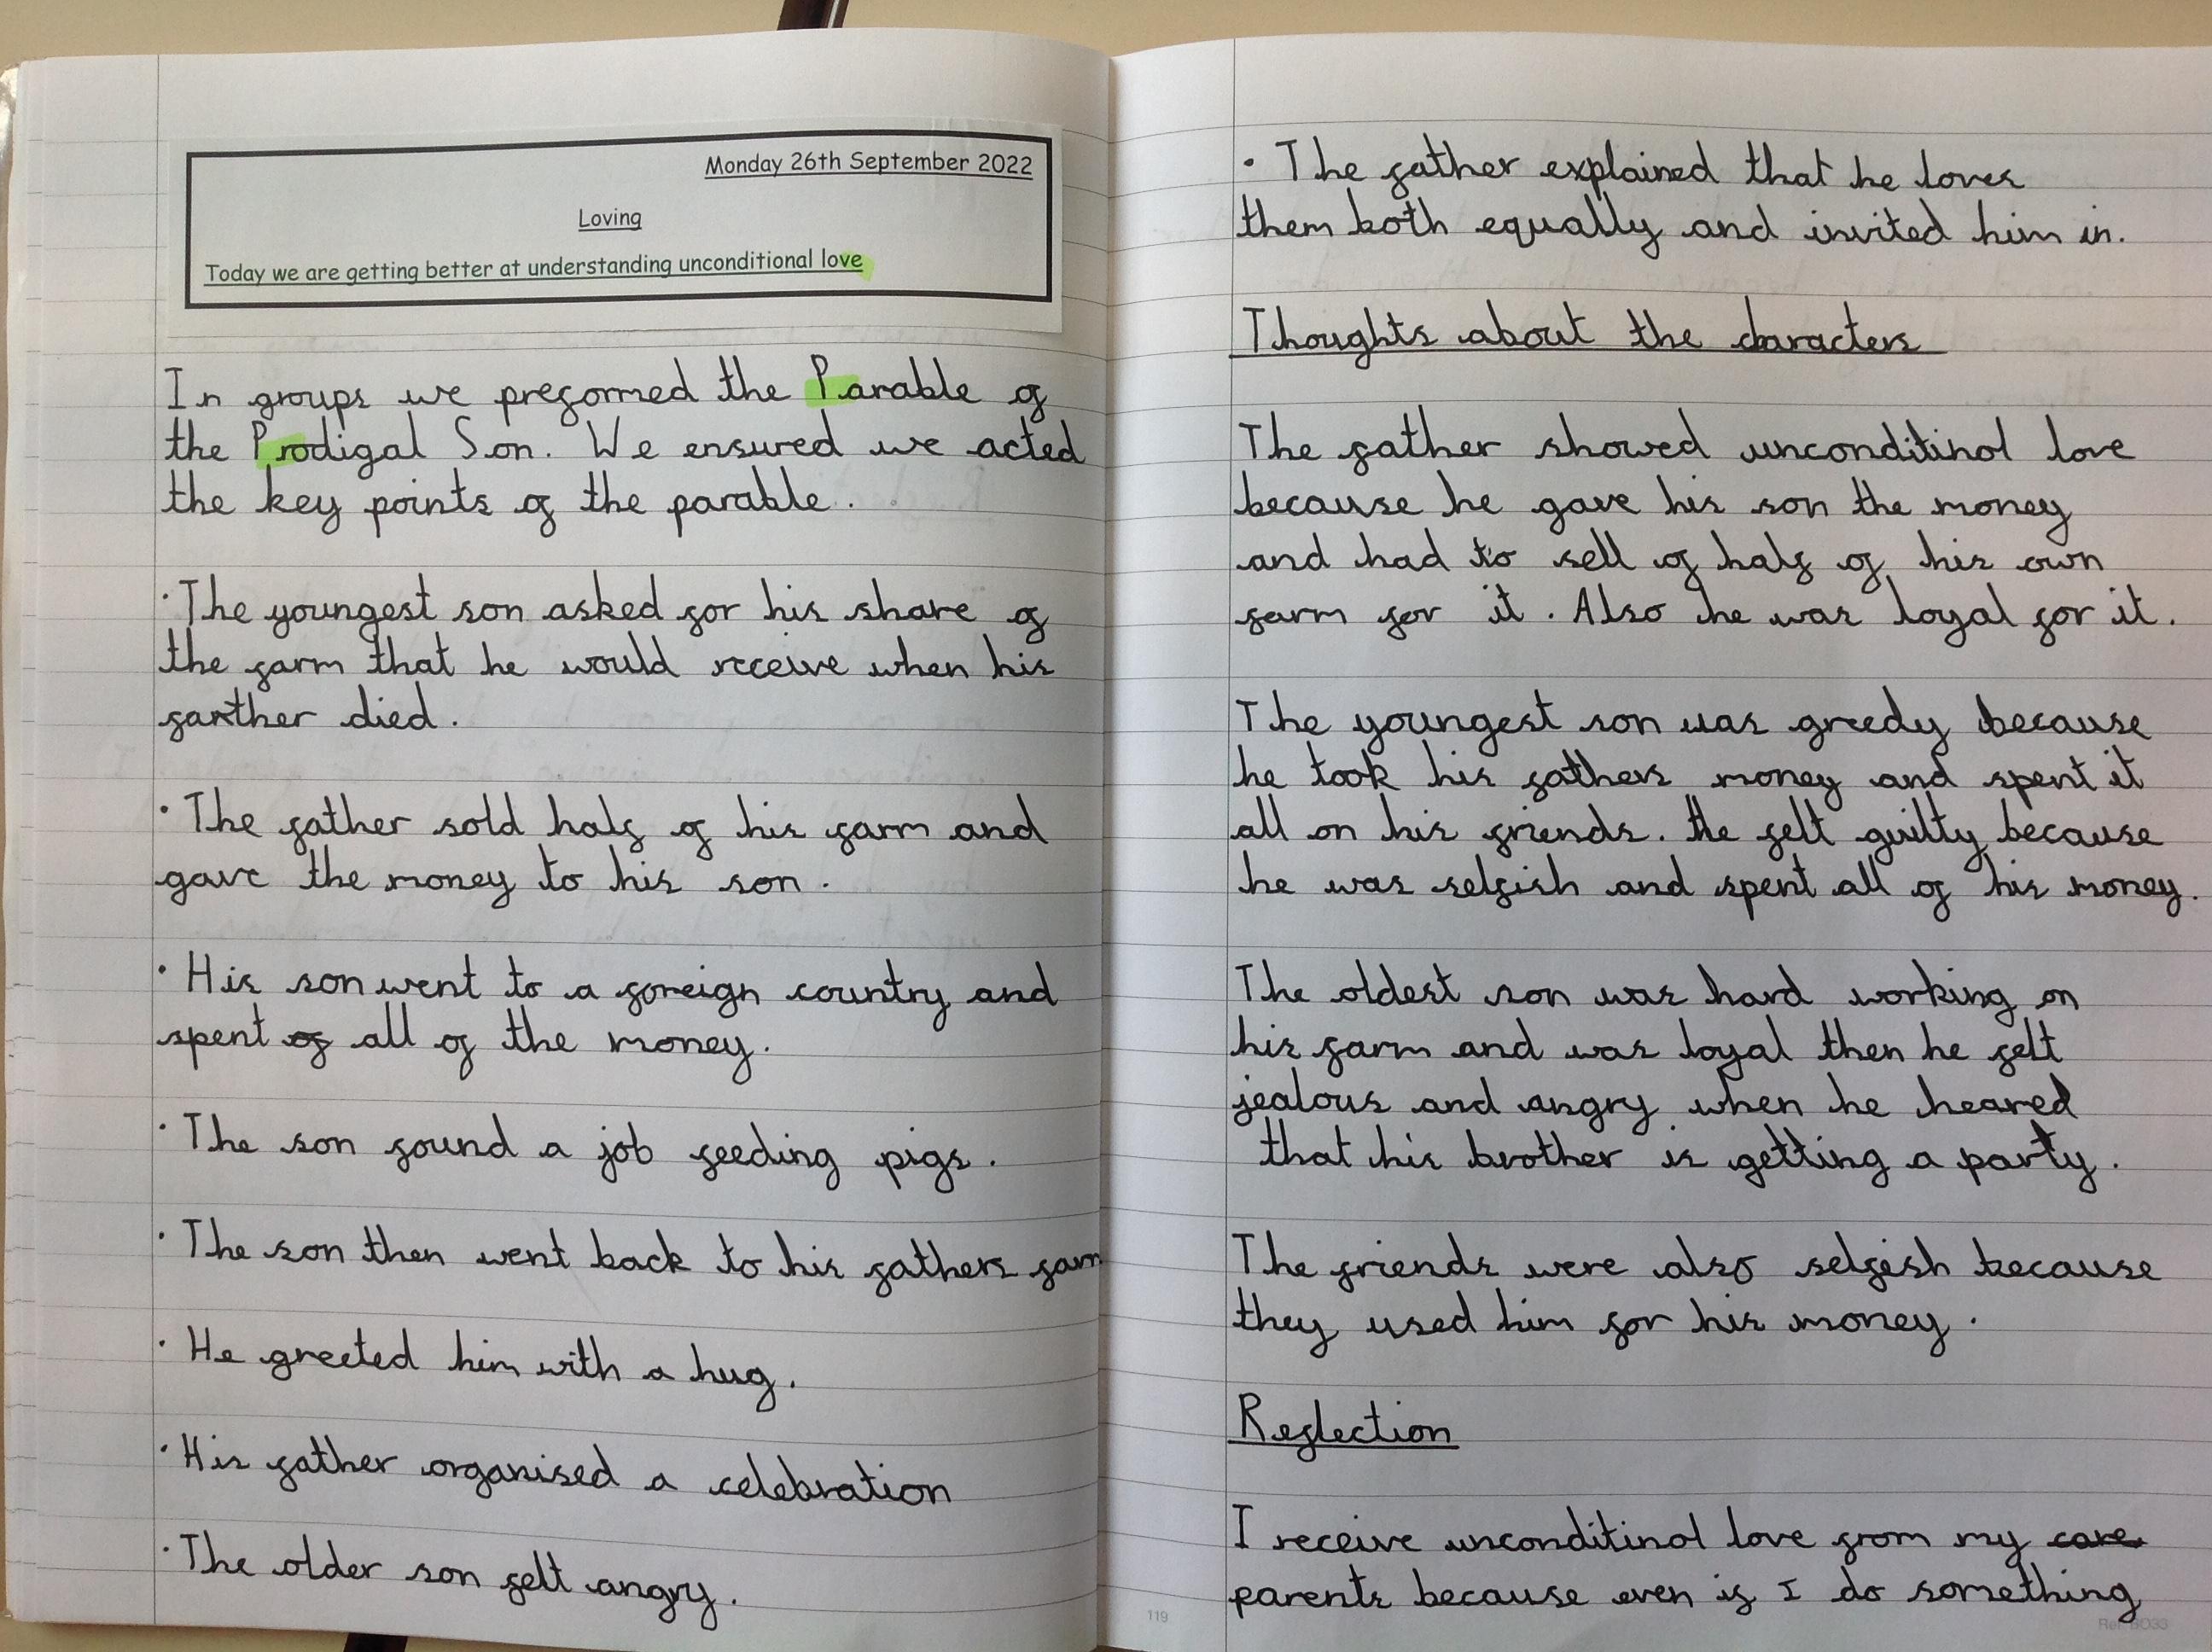 Monday 26th September 2022
Loving
Today we are getting better at understanding unconditional love
In groups we preformed the Parable of
the Prodigal Son. We ensured we acted
the key points of the parable.
· The youngest son asked for his share of
the farm that he would receive when his
farther died.
· The father sold half of his farm and
gave the money to his son.
· His son went to a foreign country and
spent of all of the money.
· The son found a job feeding pigs.
· The son then went back to his fathers farm
· He greeted him with a hug.
· His father organised a celebration
· The older son felt angry.
· The father explained that he loves
them both equally and invited him in.
Thoughts about the characters
The father showed unconditinol love
because he gave his son the money
and had to sell of half of his own
farm for it. Also he was loyal for it.
The youngest son was greedy because
he took his fathers money and spent it
all on his friends. He felt guilty because
he was selfish and spent all of his money.
The oldest son was hard working on
his farm and was loyal then he felt
jealous and angry when he heared
that his brother is getting a party.
The friends were also selfish because
they used him for his money.
Reflection
I receive unconditinol love from my care
parents because even if I do something
119
Ref: BO33